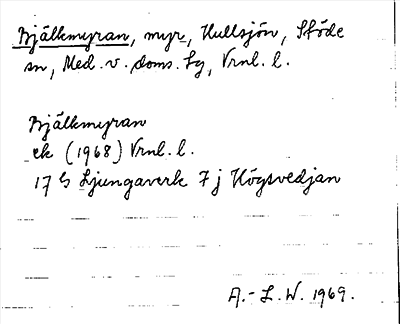 Bjälkmyran, myr, Hullsjön, Stöde
sn, Med. v. doms. lg, Vrnl. l.
Bjälkmyran
ek (1968) Vrnl. l.
17 G Ljungaverk 7 j Högsvedjan
A.-L.W. 1969.